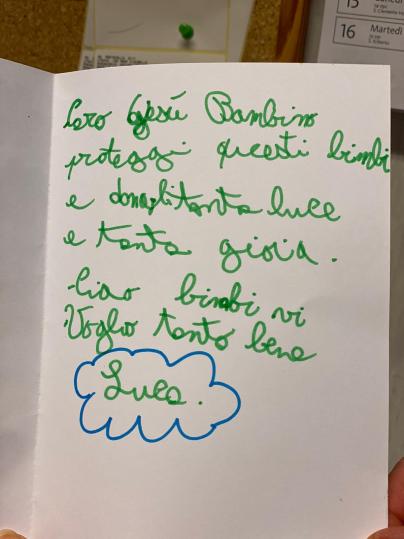 16 Martedì
Caro Gesù Bambino
proteggi questi bimbi
e donagli tanta luce
e tanta gioia.
Ciao bimbi vi
Voglio tanto bene
Luca.